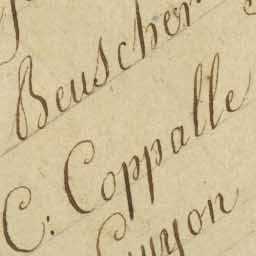 Beuscher
C: Coppalle
Guyon